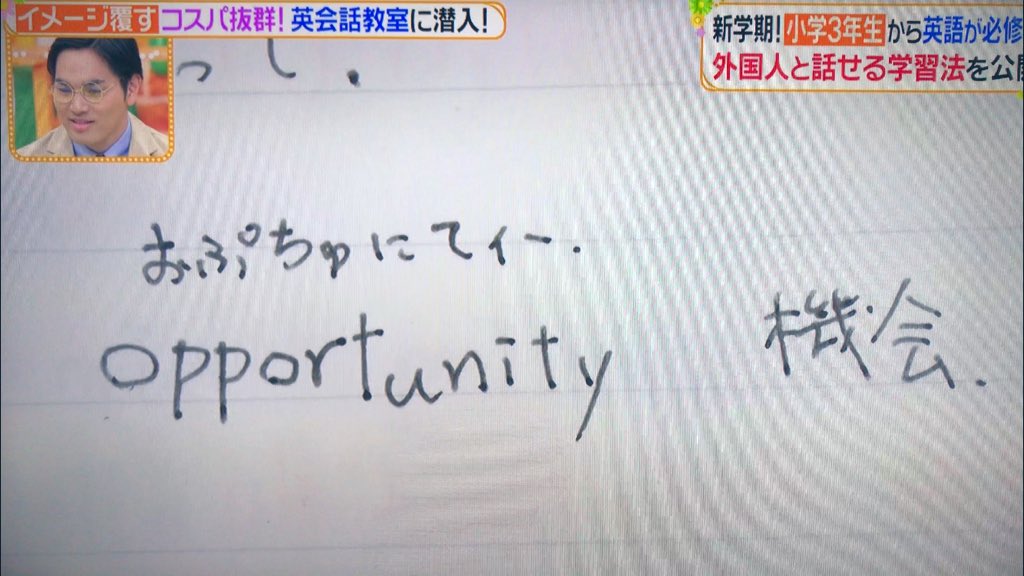 イメージ覆す コスパ抜群! 英会話教室に潜入!
新学期! 小学3年生から英語が必修
外国人と話せる学習法を公開
って.
おぷちゅにてぃー.
opportunity 機会.